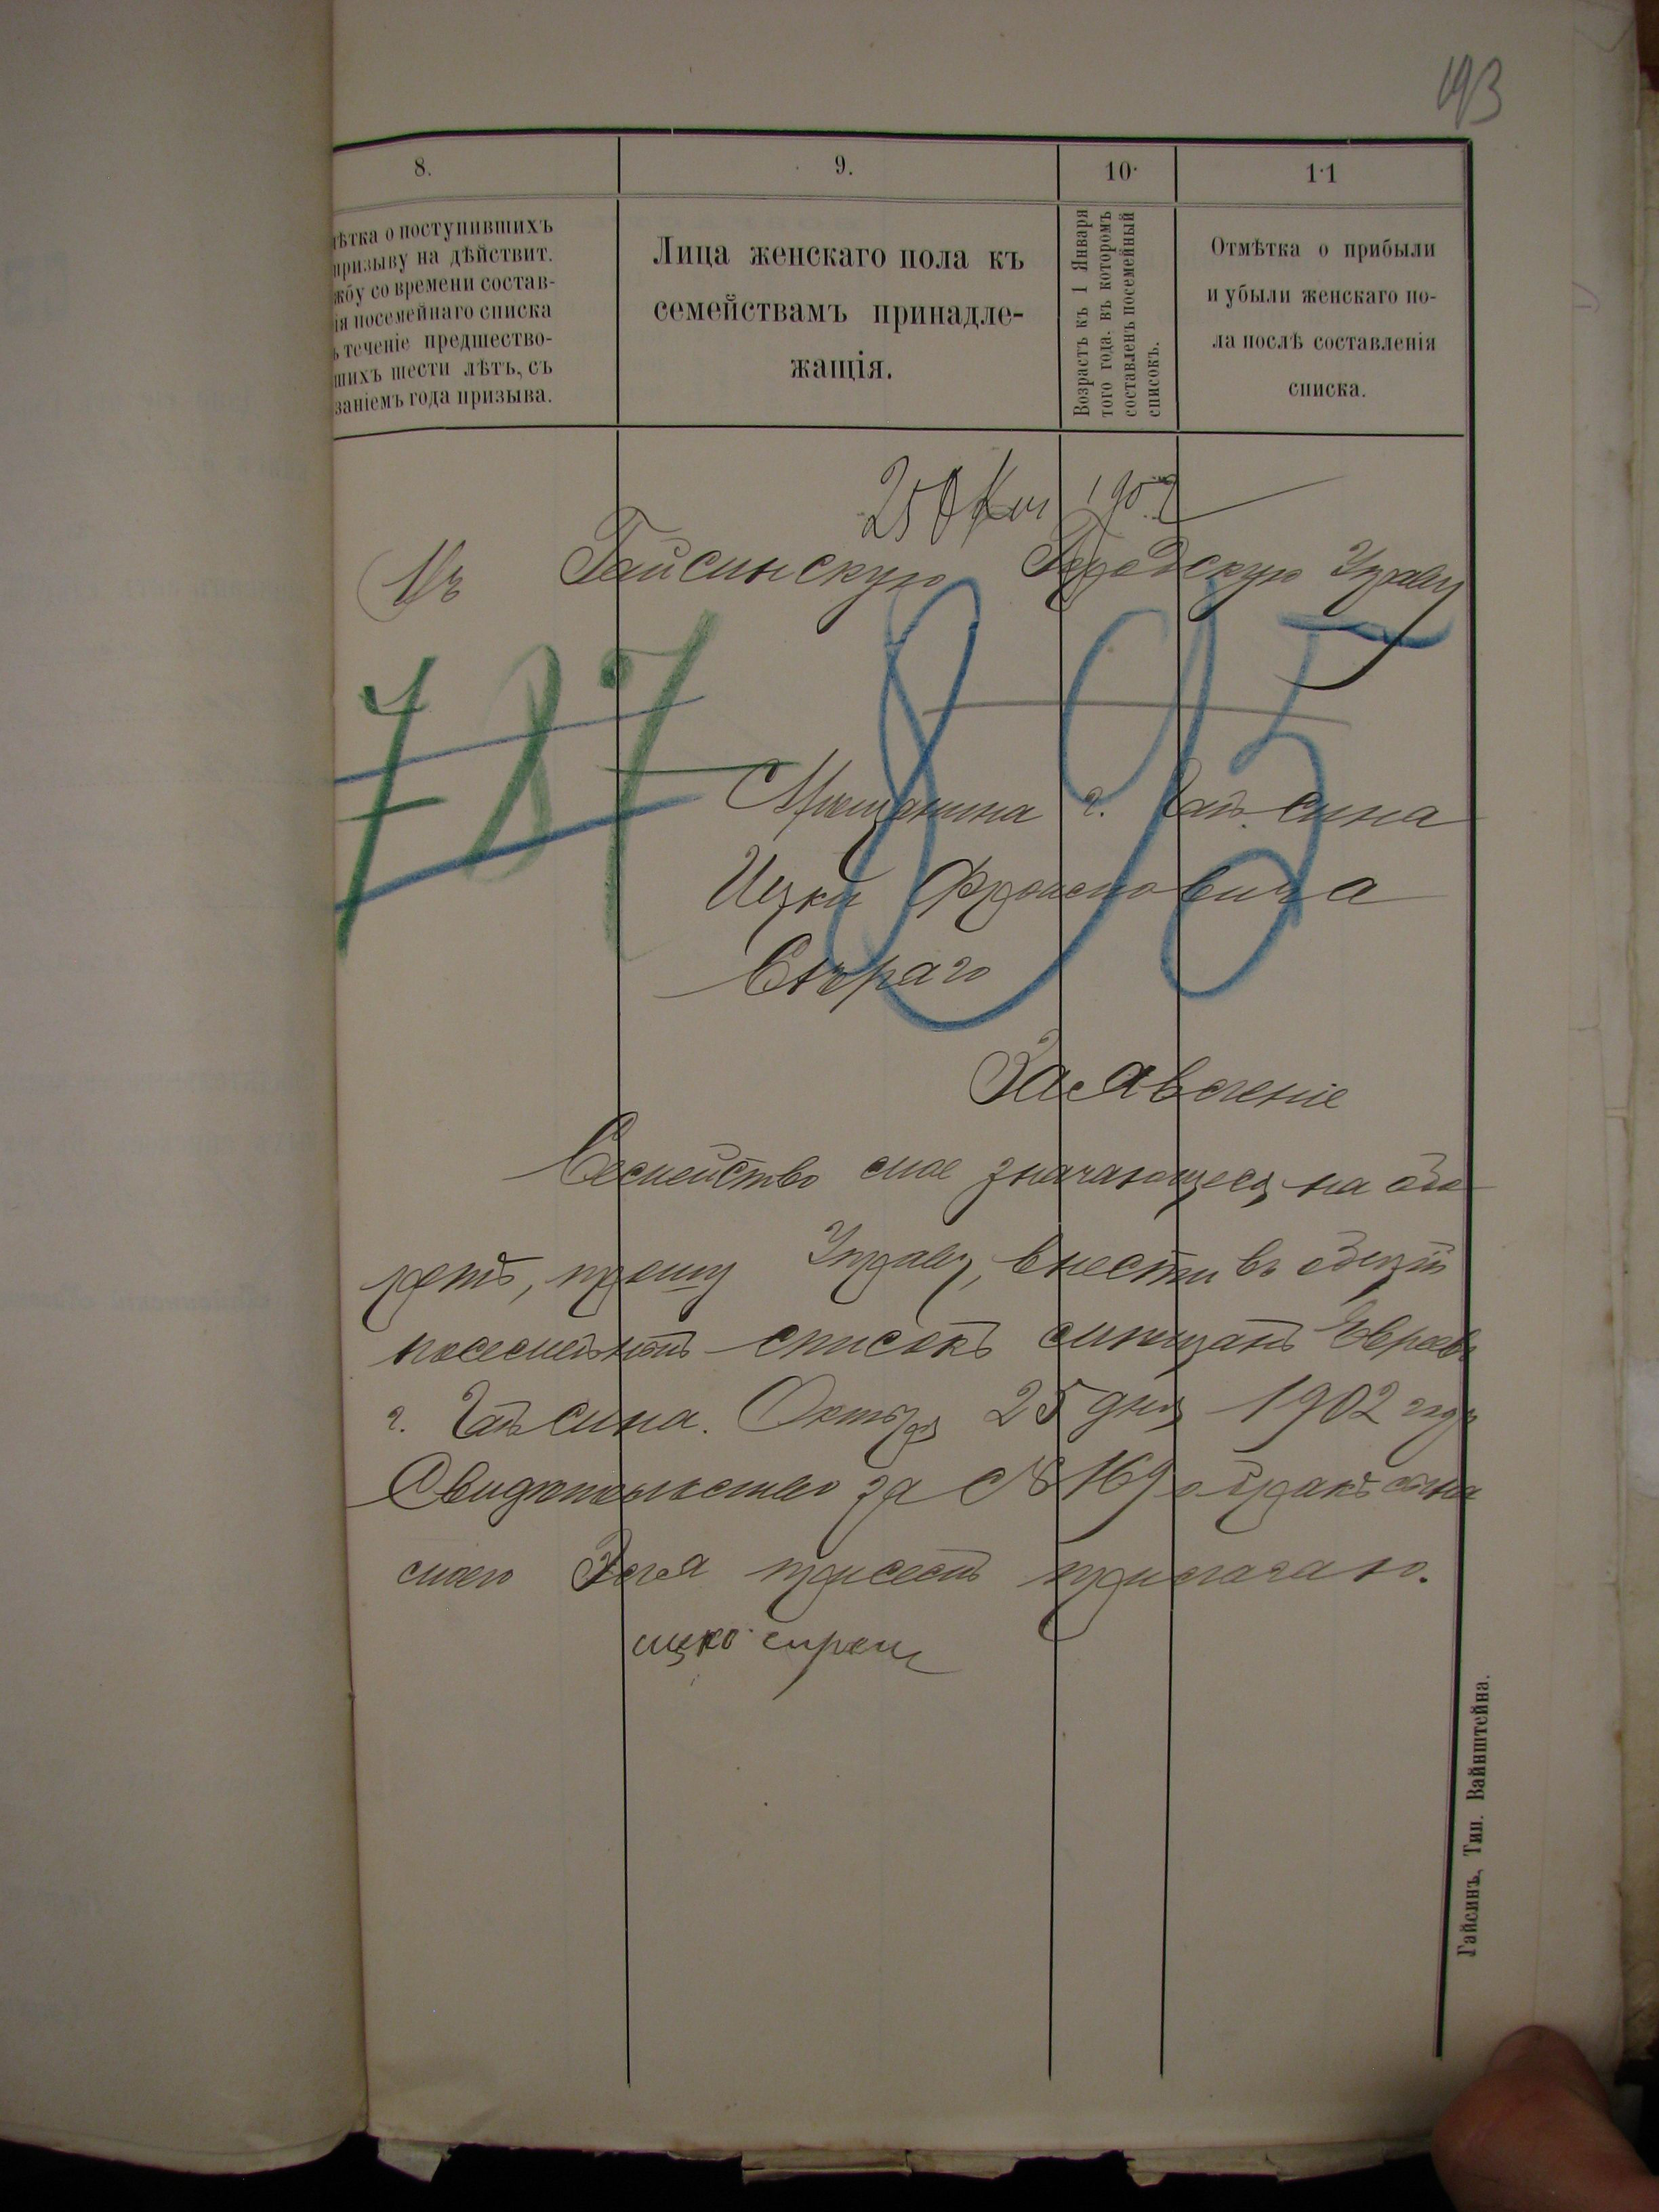 193
8.
9.
10.
11
ѣтка о поступившихъ
призыву на дѣйствит.
жбу со времени состав-
ія посемейнаго списка
ъ теченіе предшество-
шихъ шести лѣтъ, съ
заніемъ года призыва.
Лица женскаго пола къ
семействамъ принадле-
жащія.
Возрастъ къ 1 Января
того года, въ которомъ
составленъ посемейный
списокъ.
Отмѣтка о прибыли
и убыли женскаго по-
ла послѣ составленія
списка.
25 Окт 1902
Въ Гайсинскую Городскую Управу
787
895
Мѣщанина г. Гайсина
Ицка Фроимовича
Сѣраго
Заявленіе
Семейство мое значающееся на обо
ротѣ, прошу Управу, внести въ общій
посемейный списокъ мѣщанъ Евреевъ
г. Гайсина. Октября 25 дня 1902 года
Свидѣтельство за № 169 о бракѣ сына
моего присемъ прилагаю.
ицко
Гайсинъ, Тип. Вайнштейна.